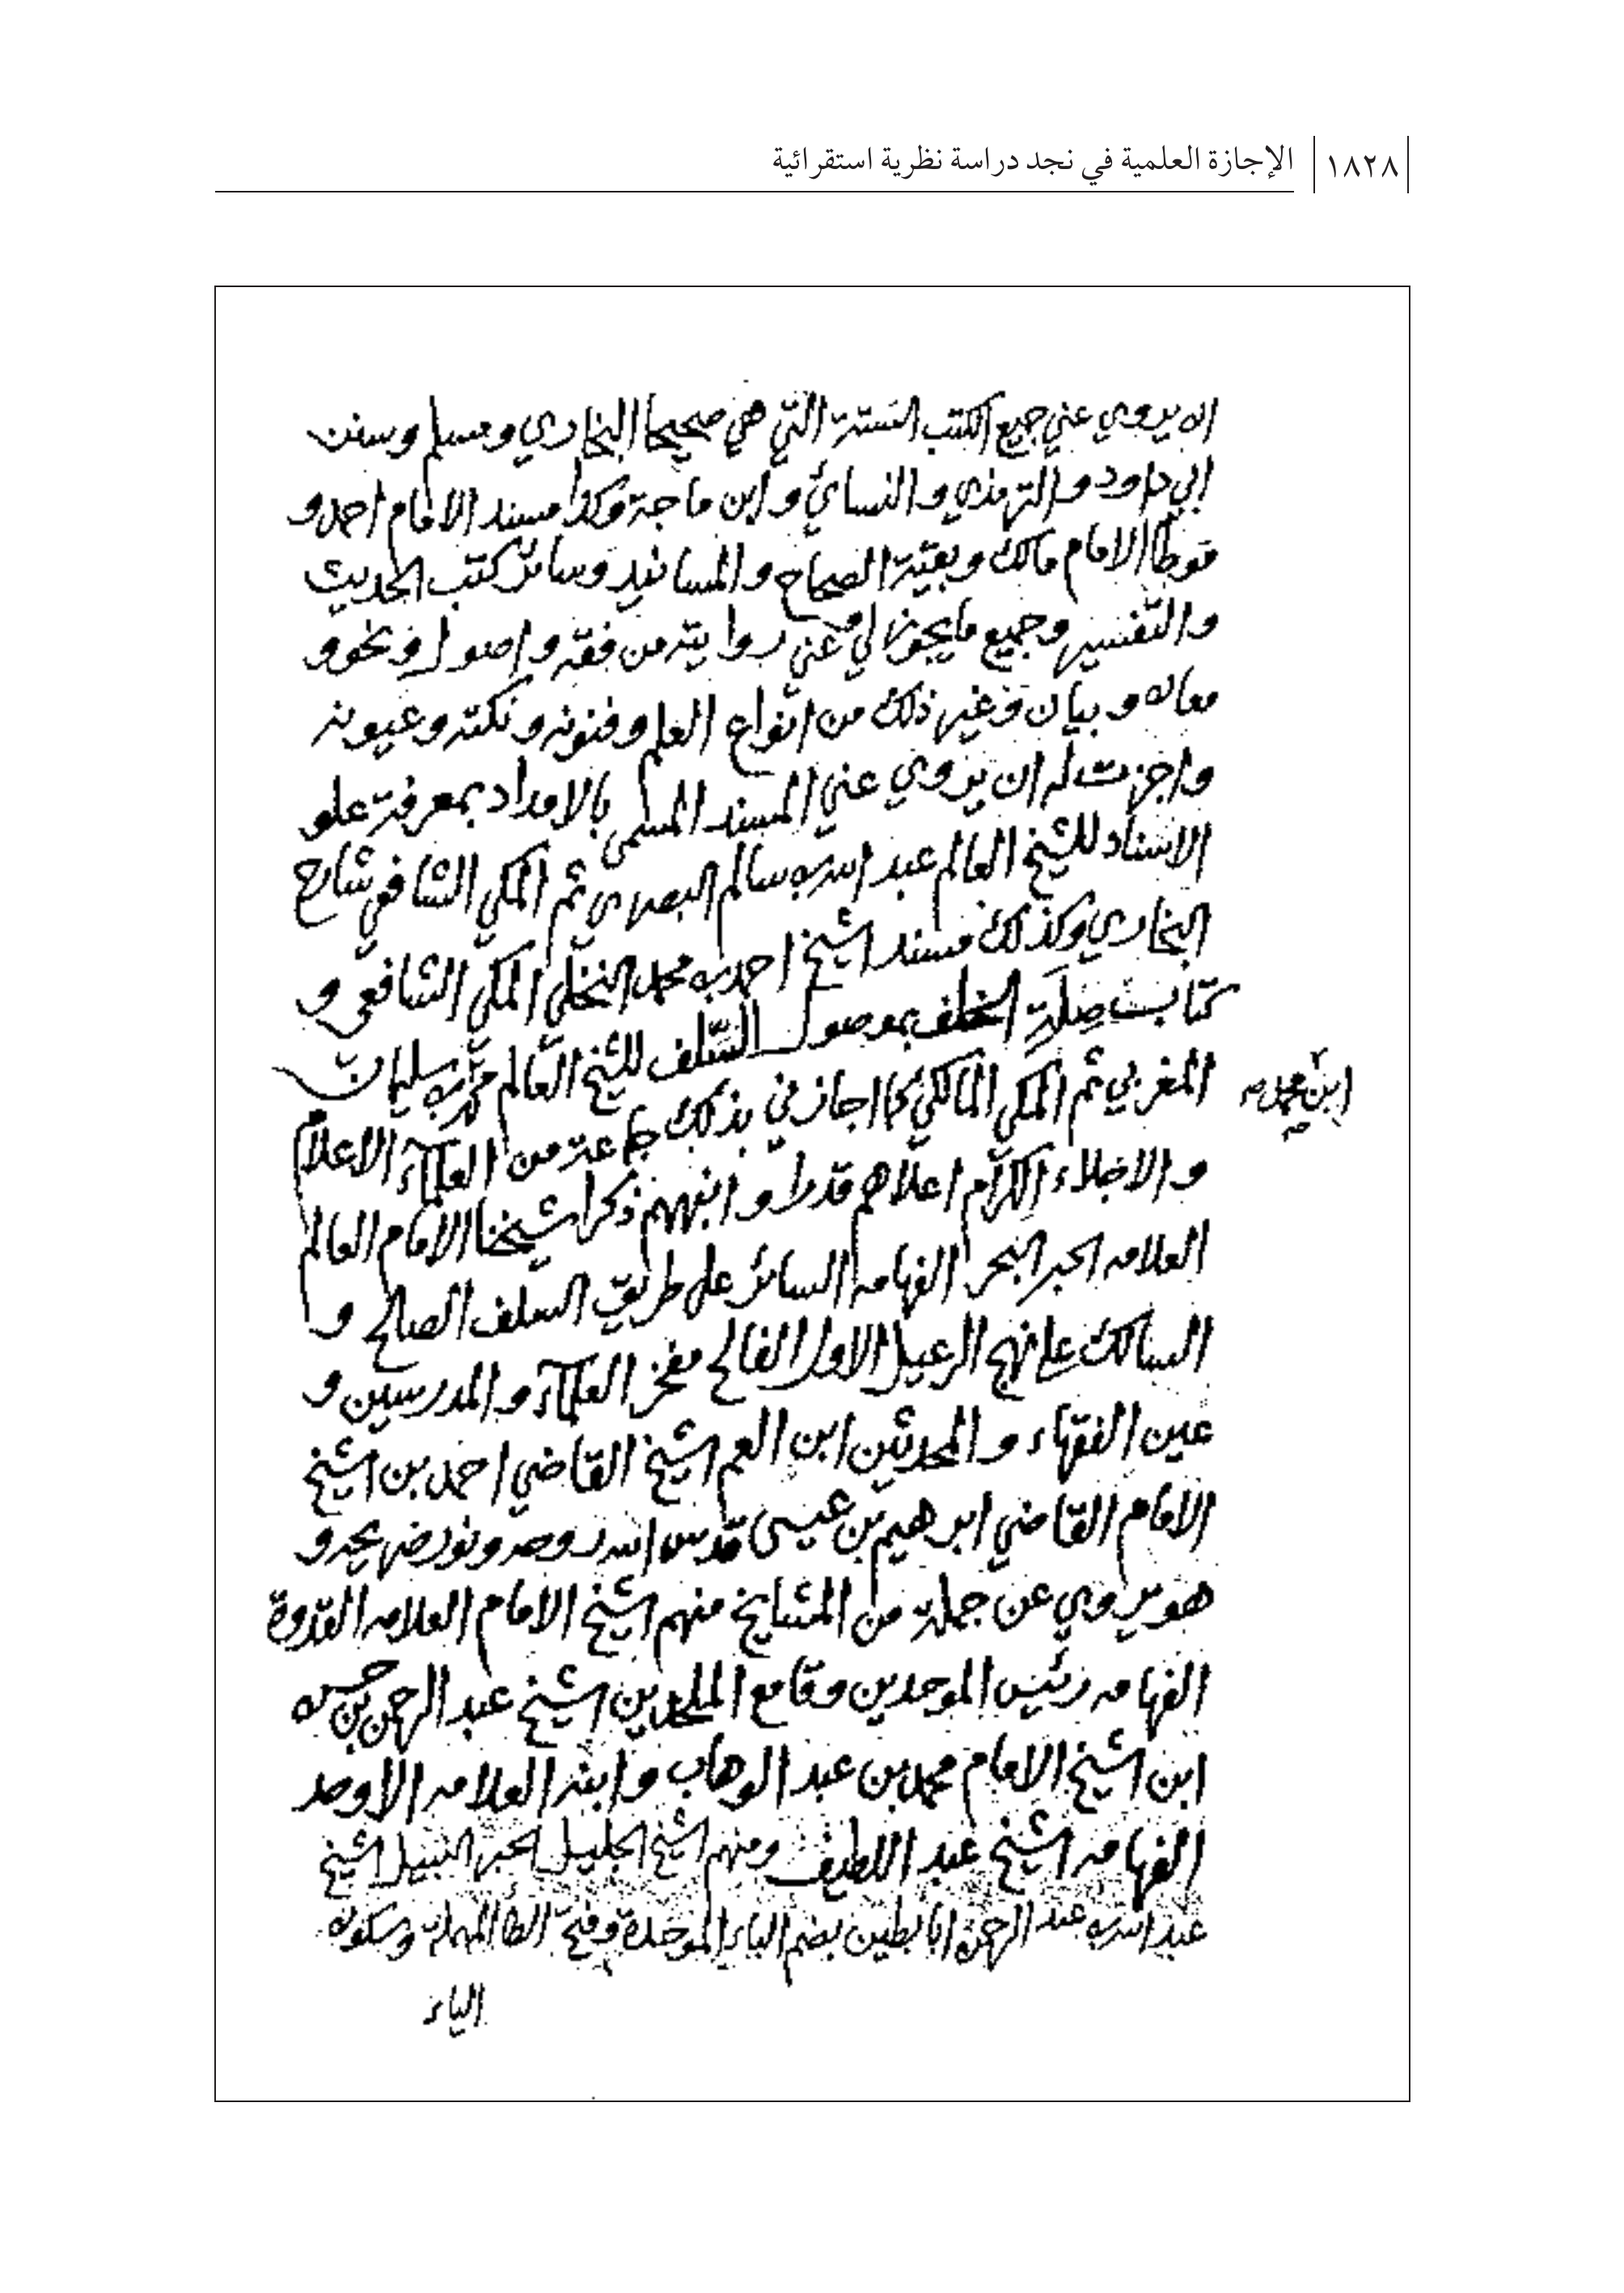 ١٨٢٨ الإجازة العلمية في نجد دراسة نظرية استقرائية
ان يروي عني جميع الكتب الستة التي هي صحيحا البخاري ومسلم وسنن
ابي داود والترمذي والنسائي وابن ماجة وكذا مسند الامام احمد و
موطأ الامام مالك وبقية الصحاح والمسانيد وسائر كتب الحديث
والتفسير وجميع ما يجوز لي وعني روايته من فقه واصول ونحو و
معان وبيان وغير ذلك من انواع العلم وفنونه ونكته وعيونه
واجزت له ان يروي عني المسند المسمى بالامداد بمعرفة علو
الاسناد للشيخ العالم عبد الله بن سالم البصري ثم المكي الشافعي شارح
البخاري وكذلك مسند الشيخ احمد بن محمد النخلي المكي الشافعي و
كتاب صلة الخلف بموصول السلف للشيخ العالم محمد بن سليمان
ابن محمد
المغربي ثم المكي المالكي كما اجازني بذلك جماعة من العلمآء الاعلام
والاجلاء الكرام اعلاهم قدرا وانبههم ذكرا شيخنا الامام العالم
العلامه الحبر البحر الفهامه السائر على طريق السلف الصالح و
السالك على نهج الرعيل الاول الفالح مفخر العلمآء والمدرسين و
عين الفقهاء والمحدثين ابن العم الشيخ القاضي احمد بن الشيخ
الامام القاضي ابرهيم بن عيسى قدس الله روحه ونور ضريحه و
هو يروي عن جملة من المشايخ منهم الشيخ الامام العلامه القدوة
الفهامه رئيس الموحدين وقامع الملحدين الشيخ عبد الرحمن بن حسن
ابن الشيخ الامام محمد بن عبد الوهاب وابنه العلامه الاوحد
الفهامه الشيخ عبد اللطيف ومنهم الشيخ الجليل الحبر النبيل الشيخ
عبد الله بن عبد الرحمن ابا بطين بضم الباء الموحدة وفتح الطا المهملة وسكون
الياء